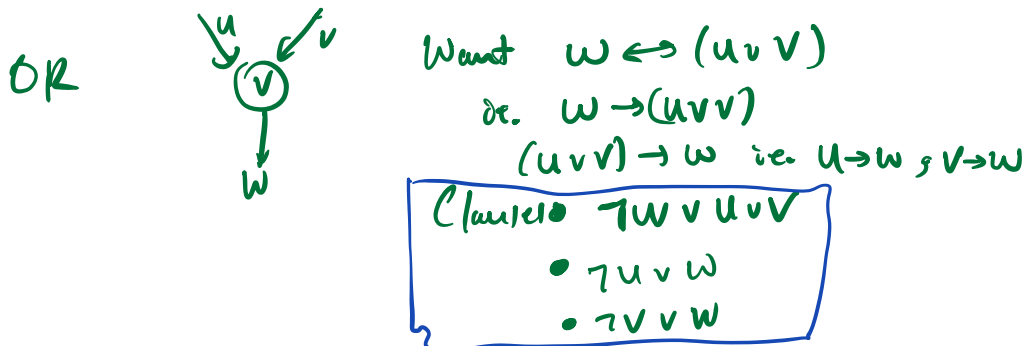 OR
u
v
∨
w
Want w ↔ (u ∨ v)
ie. w → (u ∨ v)
(u ∨ v) → w ie. u → w , v → w
Clauses • ¬w ∨ u ∨ v
• ¬u ∨ w
• ¬v ∨ w